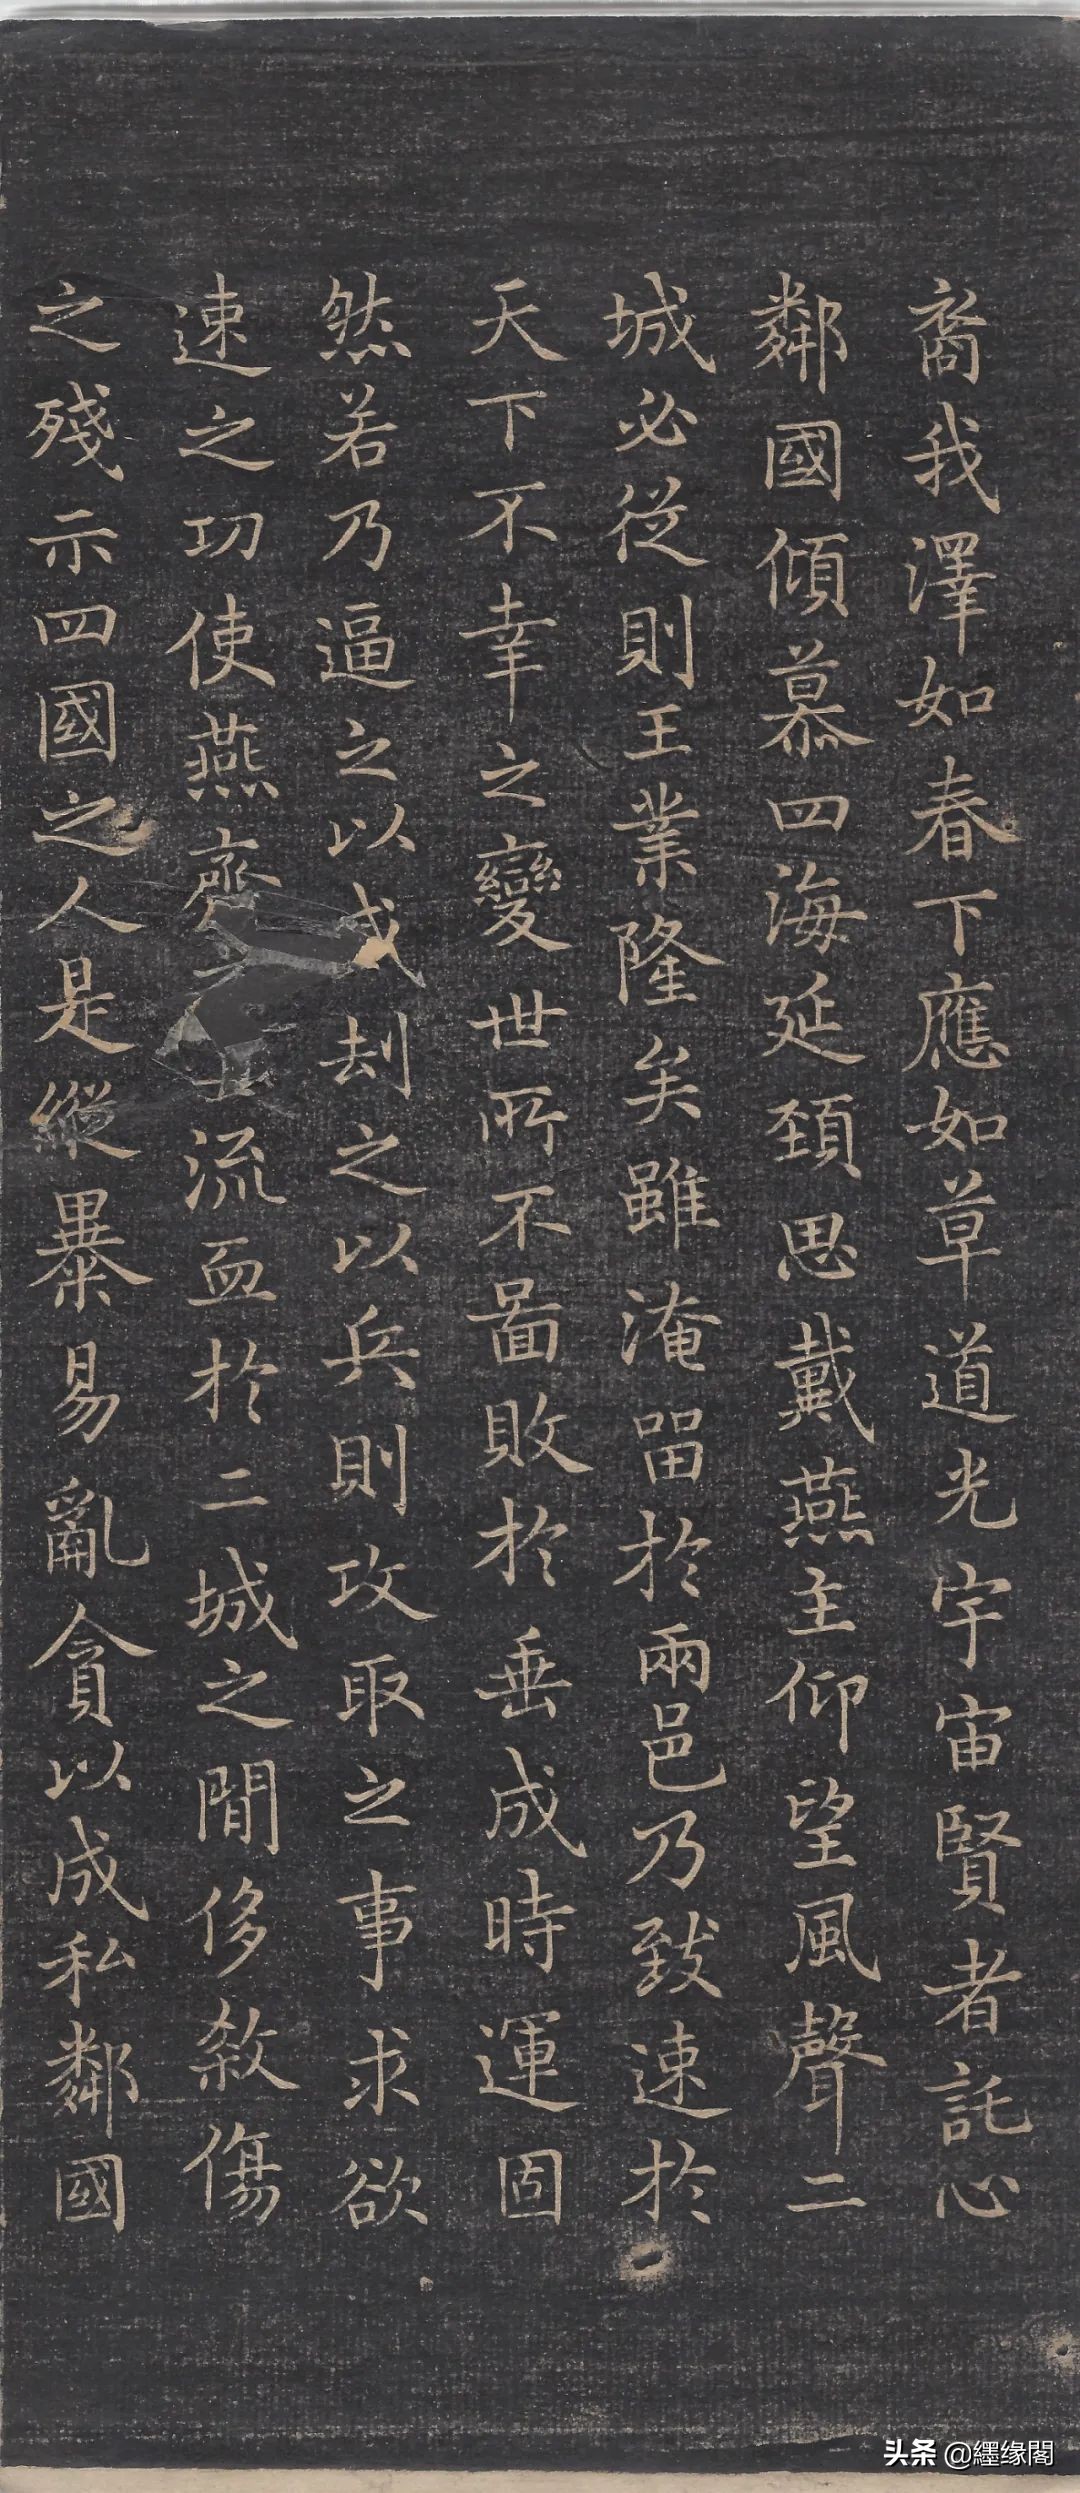 裔我澤如春下應如草道光宇宙賢者託心
鄰國傾慕四海延頸思戴燕主仰望風聲二
城必從則王業隆矣雖淹留於兩邑乃致速於
天下不幸之變世所不啚敗於垂成時運固
然若乃逼之以劫之以兵則攻取之事求欲
速之功使燕齊流血於二城之間侈殺傷
之殘示四國之人是縱暴易亂貪以成私鄰國
头条 @纆缘閣